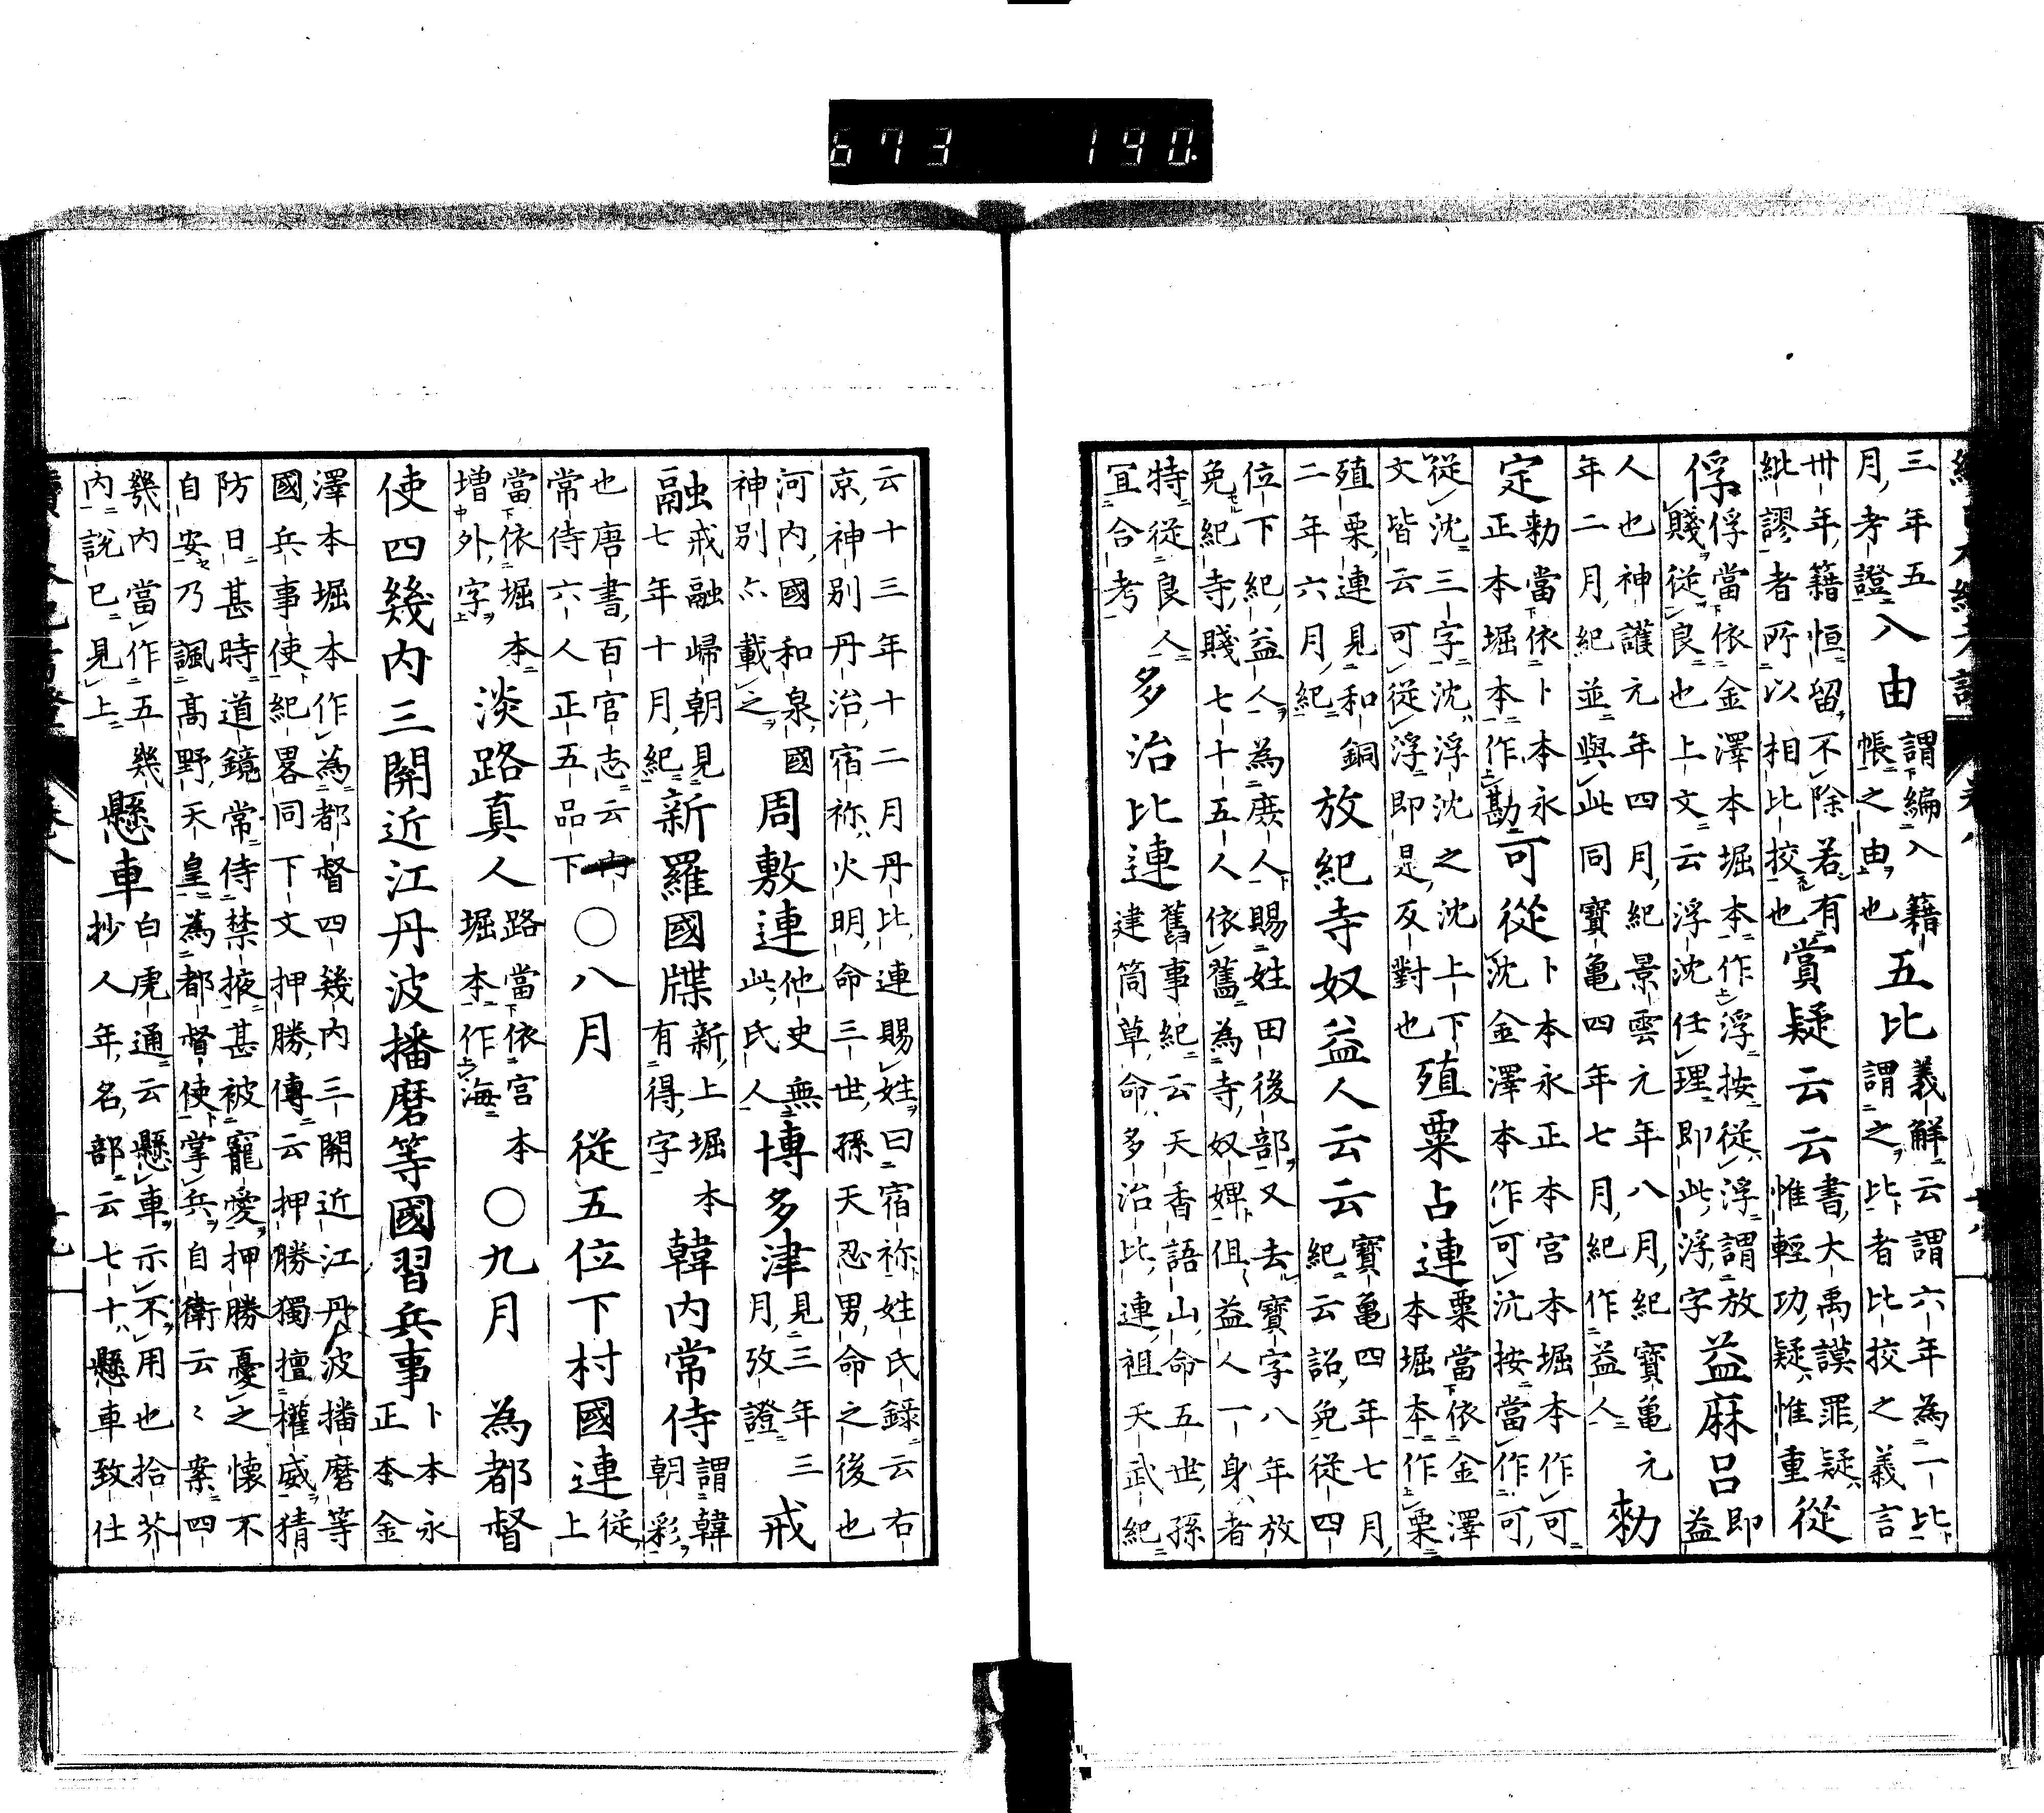 673 190.
三年五
月考證
入由
謂編入籍
帳之由也
五比
義解云謂六年為一比
謂之比者比挍之義言
卅年籍恒留不除若有
紕謬者所以相比挍也
賞疑云云
書大禹謨罪疑
惟輕功疑惟重
從
俘
俘當依金澤本堀本作浮按從浮謂放
賤從良也上文云浮沈任理即此浮字
益麻呂
即
益
人也神護元年四月紀景雲元年八月紀寶亀元
年二月紀並與此同寶亀四年七月紀作益人
勅
定
勅當依卜本永
正本堀本作勘
可從
卜本永正本宮本堀本作可
沈金澤本作可沈按當作可
從沈三字沈浮沈之沈上下
文皆云可從浮即是反對也
殖粟占連
粟當依金澤
本堀本作粟
殖粟連見和銅
二年六月紀
放紀寺奴益人云云
寶亀四年七月
紀云詔免從四
位下紀益人為庶人賜姓田後部又去寶字八年放
免紀寺賤七十五人依舊為寺奴婢但益人一身者
特從良人
宜合考
多治比連
舊事紀云天香語山命五世孫
建筒草命多治比連祖天武紀
云十三年十二月丹比連賜姓曰宿祢姓氏錄云右
京神別丹治宿祢火明命三世孫天忍男命之後也
河内國和泉國
神別亦載之
周敷連
他史無
此氏人
博多津
見三年三
月攷證
戒
融
戒融歸朝見
七年十月紀
新羅國牒
新上堀本
有得字
韓内常侍
謂韓
朝彩
也唐書百官志云内
常侍六人正五品下
〇八月
從五位下村國連
從
上
當依堀本
増外字
淡路真人
路當依宮本
堀本作海
〇九月
為都督
使四幾内三關近江丹波播磨等國習兵事
卜本永
正本金
澤本堀本作為都督四幾内三關近江丹波播磨等
國兵事使紀畧同下文押勝傳云押勝獨擅權威猜
防日甚時道鏡常侍禁掖甚被寵愛押勝憂之懷不
自安乃諷髙野天皇為都督使掌兵自衛云々案四
幾内當作五幾
内說已見上
懸車
白虎通云懸車示不用也拾芥
抄人年名部云七十懸車致仕